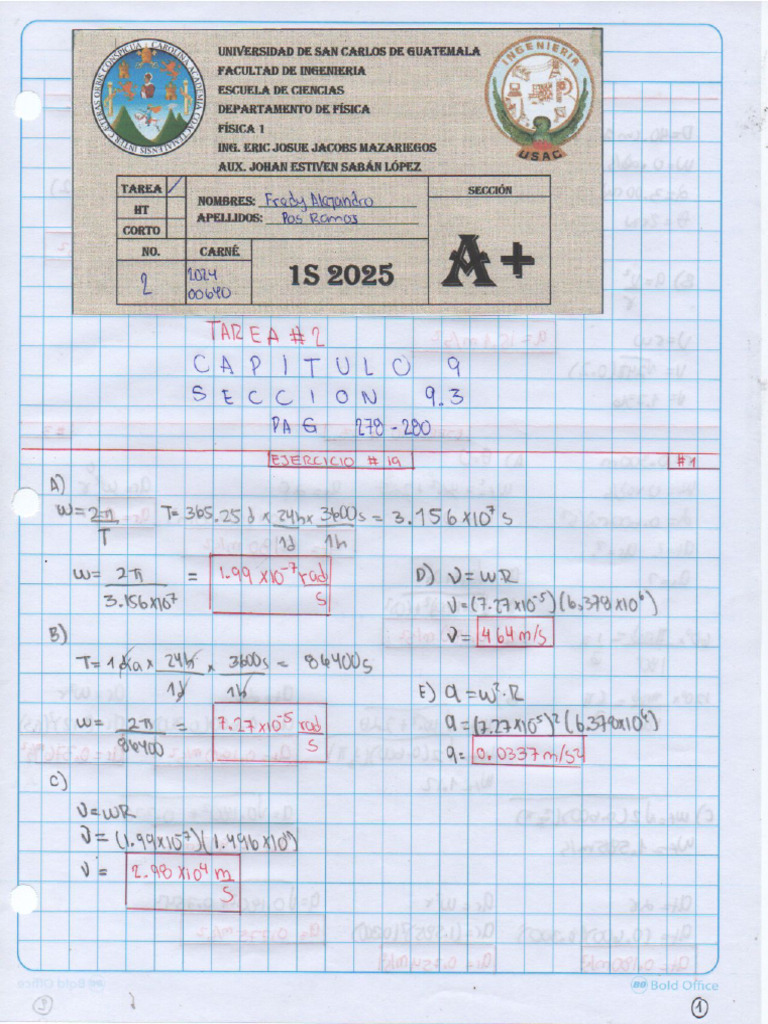 UNIVERSIDAD DE SAN CARLOS DE GUATEMALA
FACULTAD DE INGENIERIA
ESCUELA DE CIENCIAS
DEPARTAMENTO DE FÍSICA
FÍSICA 1
ING. ERIC JOSUE JACOBS MAZARIEGOS
AUX. JOHAN ESTIVEN SABÁN LÓPEZ
INGENIERIA
USAC
TAREA /
HT
CORTO
NOMBRES: Fredy Alejandro
APELLIDOS: Pos Ramos
SECCIÓN
A+
NO. CARNÉ
2 2024 00640
1S 2025
TAREA #2
CAPITULO 9
SECCION 9.3
PAG 278-280
EJERCICIO #19 #1
A)
w=2π/T T=365.25d x 24h/1d x 3600s/1h = 3.156x10⁷ s
w= 2π/3.156x10⁷ = 1.99x10⁻⁷ rad/s
B)
T=1dia x 24h/1d x 3600s/1h = 86400s
w= 2π/86400 = 7.27x10⁻⁵ rad/s
C)
v=wR
v=(1.99x10⁻⁷)(1.496x10⁴)
v= 2.98x10⁴ m/s
D) v=wR
v=(7.27x10⁻⁵)(6.378x10⁶)
v= 464m/s
E) a=w²·R
a=(7.27x10⁻⁵)²(6.378x10⁶)
a= 0.0337m/s²
Bold Office
1